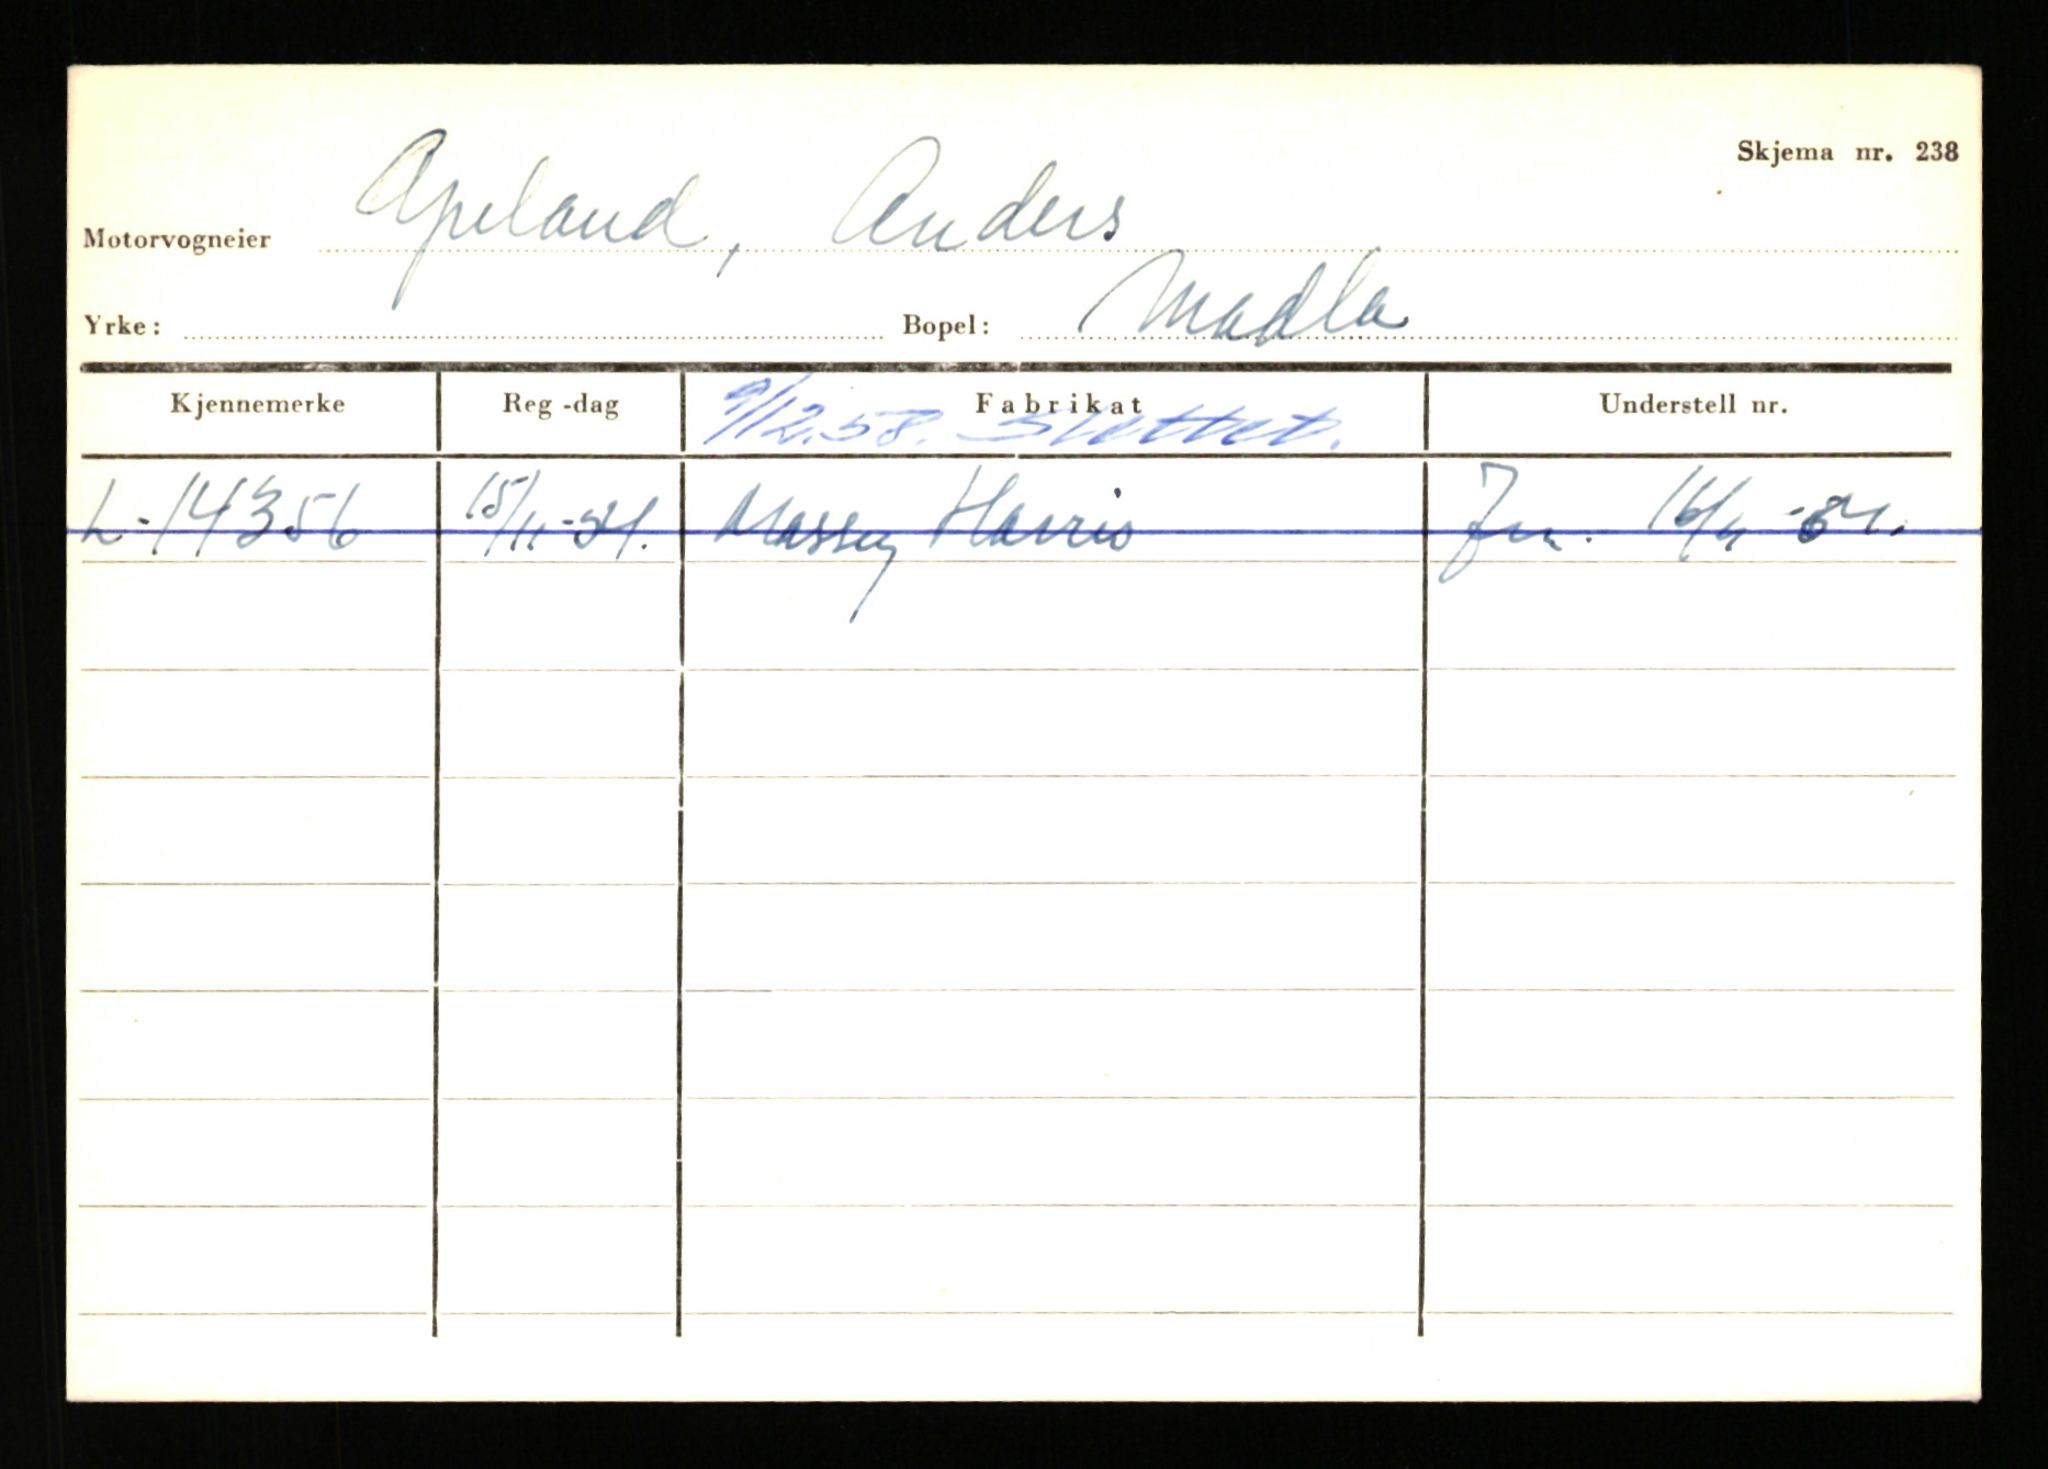 Skjema nr. 238
Motorvogneier Apeland, Anders
Yrke: Bopel: Madla
Kjennemerke Reg-dag Fabrikat Understell nr.
9/12.58. Slettet.
L-14356 15/11-54. Massey Harris 16/11-54.